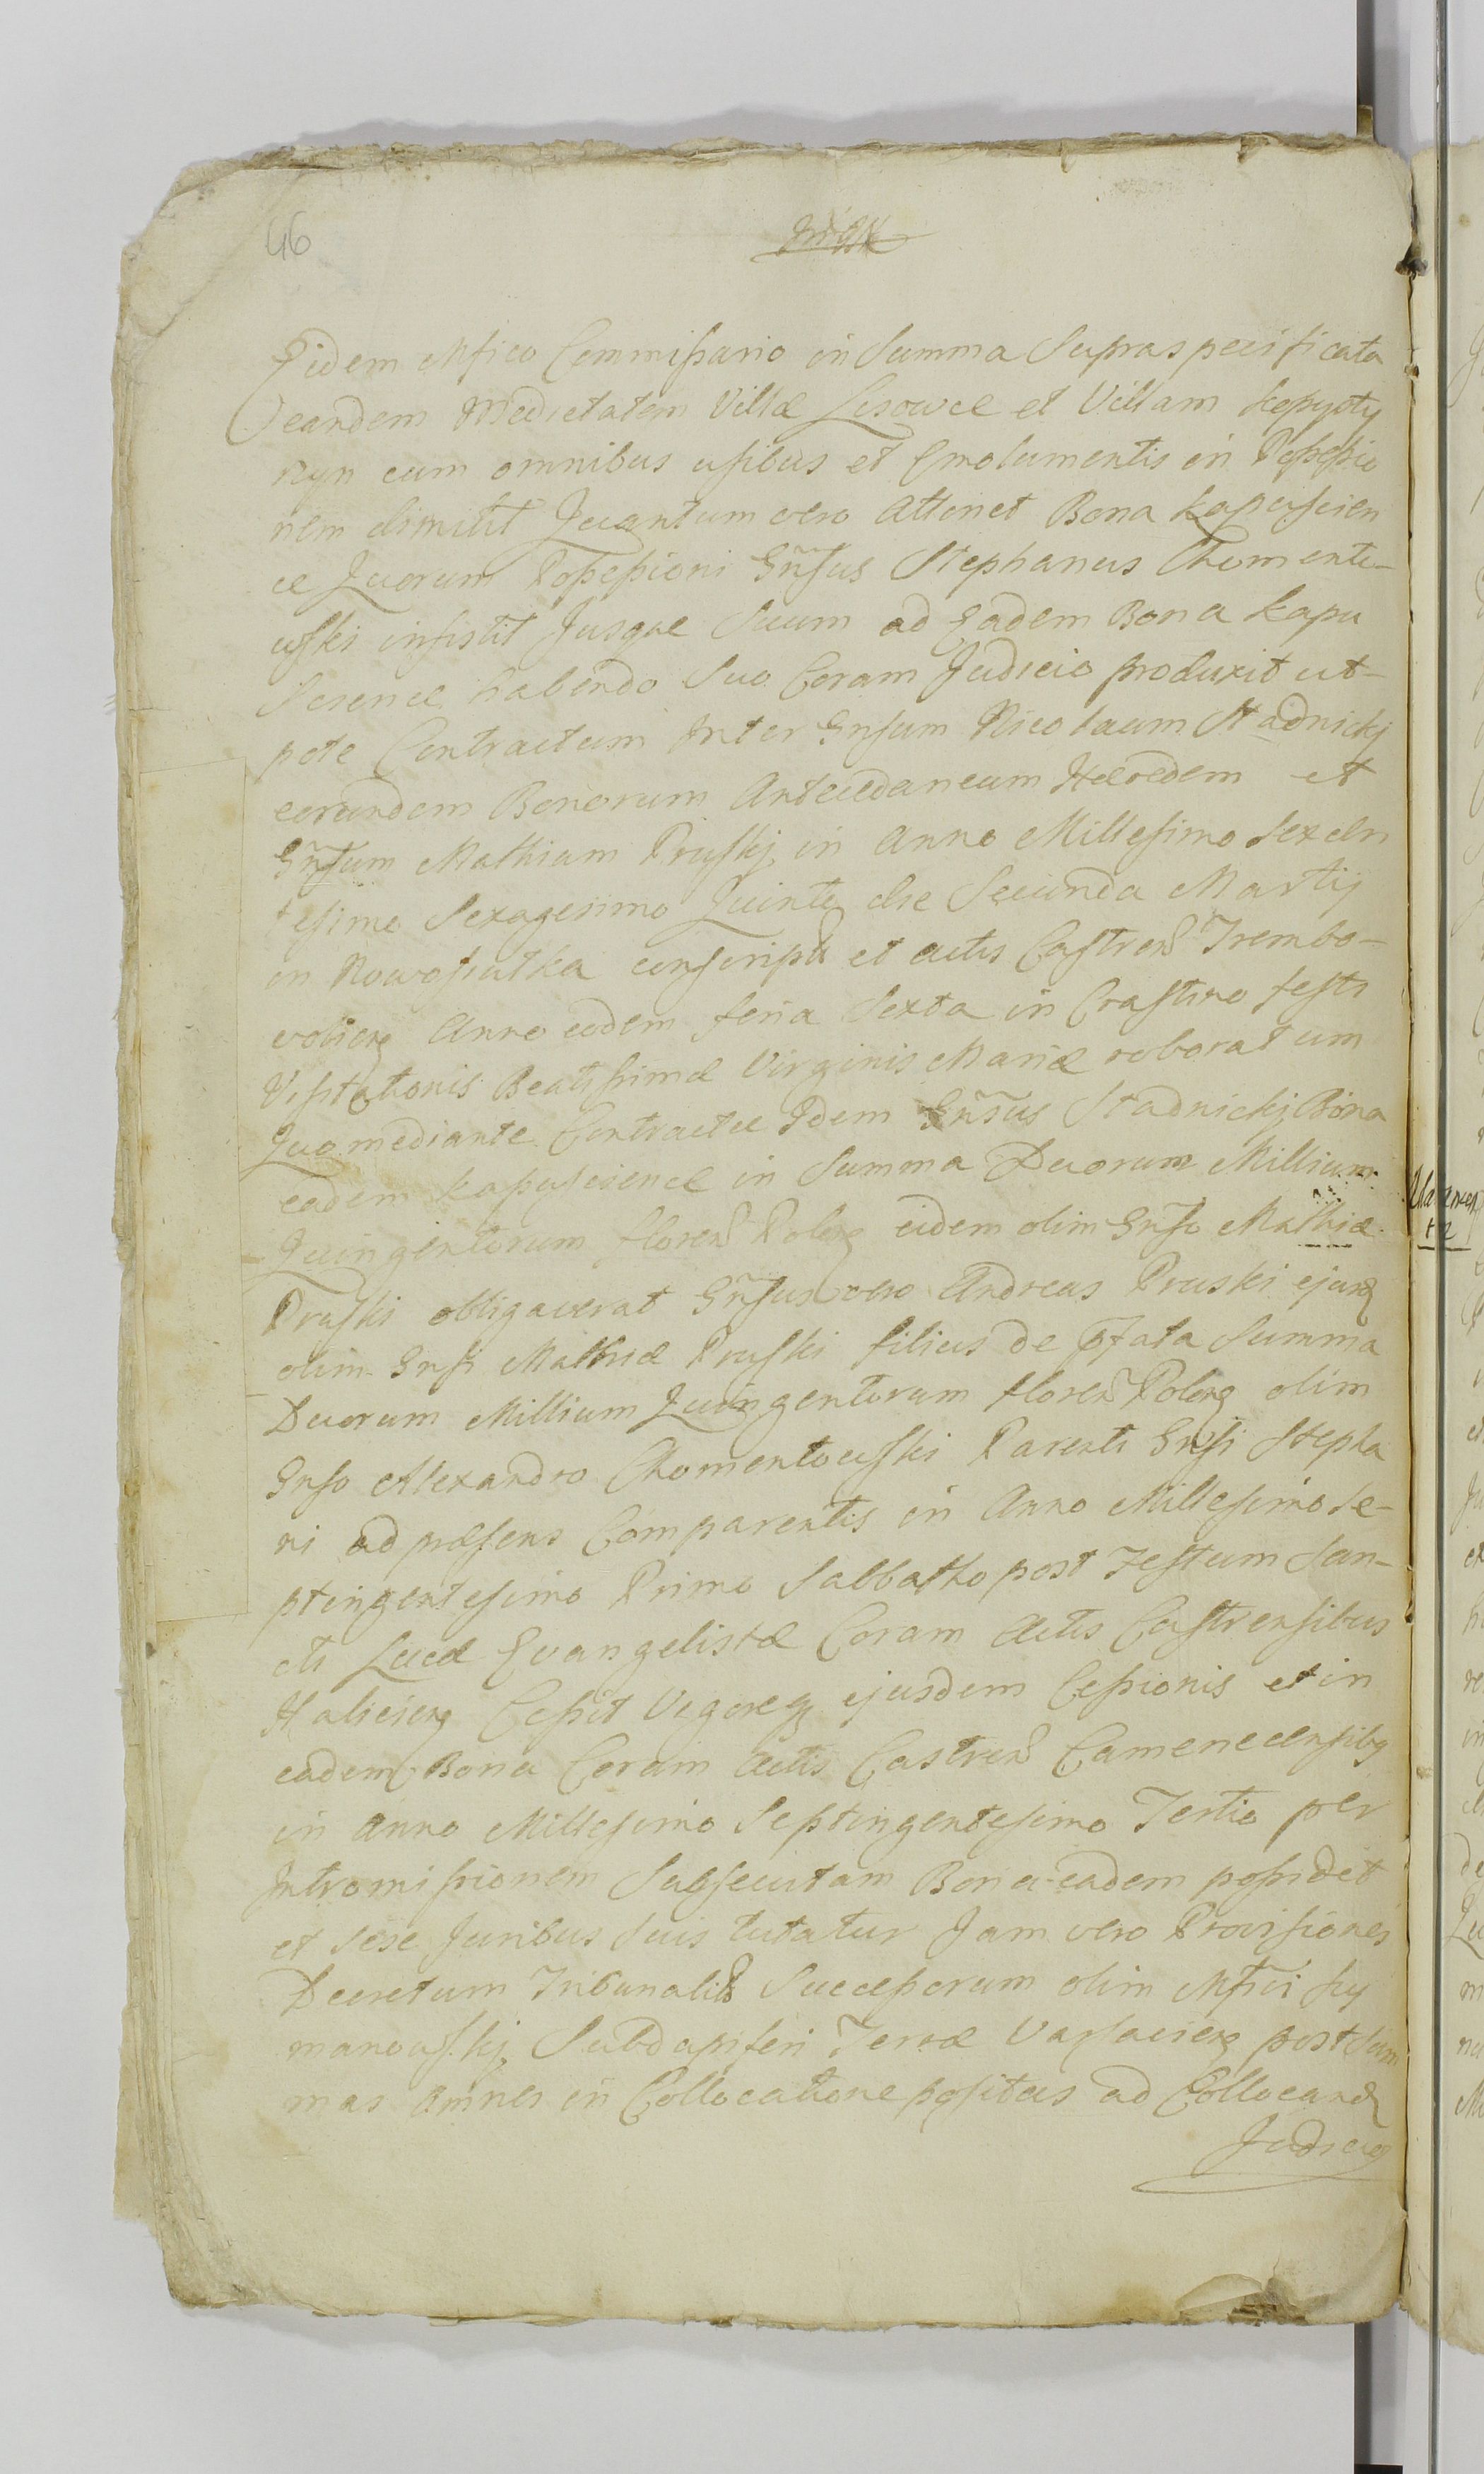 46
Eidem Mfico Commissario in Summa Supraspecificata
eandem Medietatem Villæ Lisowce et Villam Kopysty
nyn cum omnibus usibus et Emolumentis in Possessio
nem dimitit Quantum vero Attinet Bona Kapuscien
ce Quorum Possessioni Gnsus Stephanus Chomento-
wski insistit Jusque Suum ad Eadem Bona Kapu
science habendo Suo Coram Judicio produxit ut-
pote Contractum Inter Gnsum Nicolaum Stadnickj
eorundem Bonorum Antecedaneum Hæredem et
Gnsum Mathiam Pruskj in Anno Millesimo Sexcen
tesimo Sexagesimo Quinto die Secunda Martij
in Nowosiułka conscript et actis Castren Trembo-
volien Anno eodem feria Sexta in Crastino festi
Visitationis Beatissimæ Virginis Mariæ roboratum
Quo mediante Contractu Idem Gnsus Stadnickj Bona
eadem Kapuscience in Summa Duorum Millium
Quingentorum floren Polon eidem olim Gnso Mathiæ
Pruski obligaverat Gnsus vero Andreas Pruski ejusd
olim Gnsi Mathiæ Pruski filius de pfata Summa
Duorum Millium Quingentorum floren Polon olim
Gnso Alexandro Chomentowski Parenti Gnsi Stepha
ni ad præsens Comparentis in Anno Millesimo Se-
ptingentesimo Primo Sabbatho post Festum San-
cti Lucæ Evangelistæ Coram Actis Castrensibus
Halicien Cessit Vigoreq ejusdem Cessionis et in
eadem Bona Coram Actis Castren Camenecensibq
in Anno Millesimo Septingentesimo Tertio per
Intromissionem Subsecutam Bona eadem possidet
et sese Juribus Suis tutatur Jam vero Provisiones
Decretum Tribunalit Successorum olim Mfici Sy
manowskj Subdapiferi Terræ Varsavien post Sum
mas omnes in Collocatione positas ad Collocand
Judicium